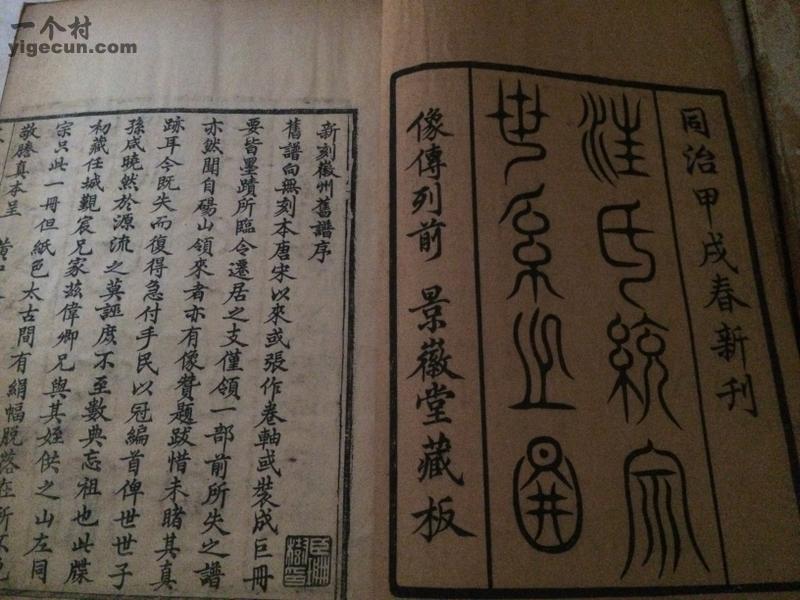 一个村
yigecun.com
同治甲戌春新刊
汪氏統宗
世系之圖
像傳列前 景徽堂藏板
新刻徽州舊譜序
舊譜向無刻本唐宋以來或張作卷軸或裝成巨冊
要皆墨蹟所臨令遷居之支僅領一部前所失之譜
亦然聞自碭山領來者亦有像贊題跋惜未睹其真
跡耳今既失而復得急付手民以冠編首俾世世子
孫咸曉然於源流之莫誣庶不至數典忘祖也此牒
初藏任城觀宸兄家茲偉卿兄與其姪供之山左同
宗只此一冊但紙色太古間有絹幅脫落在所不免
敬謄真本呈